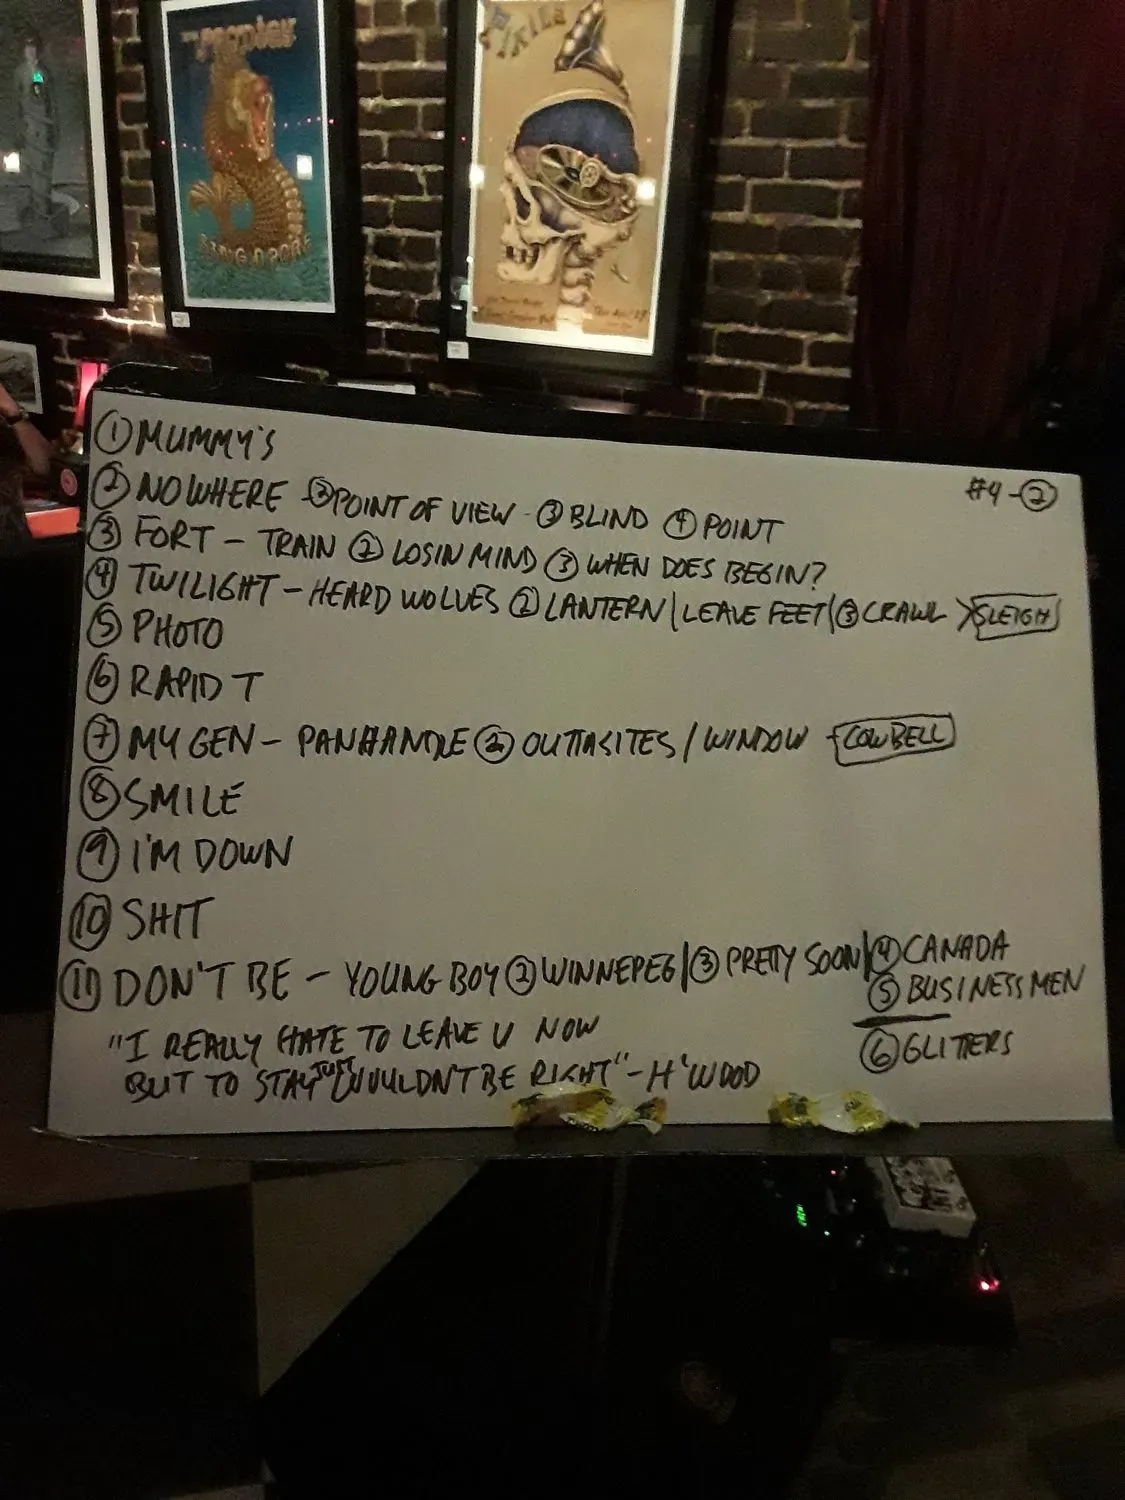 THE PRODIGY
SINGAPORE
PIXIES
① MUMMY'S
#4 - ②
② NOWHERE - ② POINT OF VIEW - ③ BLIND ④ POINT
③ FORT - TRAIN ② LOSIN MIND ③ WHEN DOES BEGIN?
④ TWILIGHT - HEARD WOLVES ② LANTERN / LEAVE FEET / ③ CRAWL > SLEIGH
⑤ PHOTO
⑥ RAPID T
⑦ MY GEN - PANHANDLE ② OUTTASITES / WINDOW - COWBELL
⑧ SMILE
⑨ I'M DOWN
⑩ SHIT
⑪ DON'T BE - YOUNG BOY ② WINNEPEG / ③ PRETTY SOON / ④ CANADA
⑤ BUSINESSMEN
⑥ GLITTERS
"I REALLY HATE TO LEAVE U NOW
BUT TO STAY JUST WOULDN'T BE RIGHT" - H'WOOD